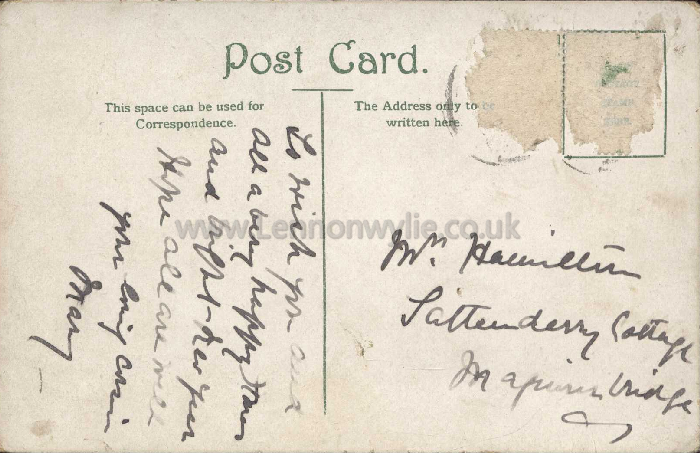 Post Card.
This space can be used for
Correspondence.
The Address only to be
written here.
To wish you and
all a very happy Xmas
and bright New year
Hope all are well
your loving cousin
Mary
Mrs. Hamilton
Cottage
bridge
www.Lennonwylie.co.uk